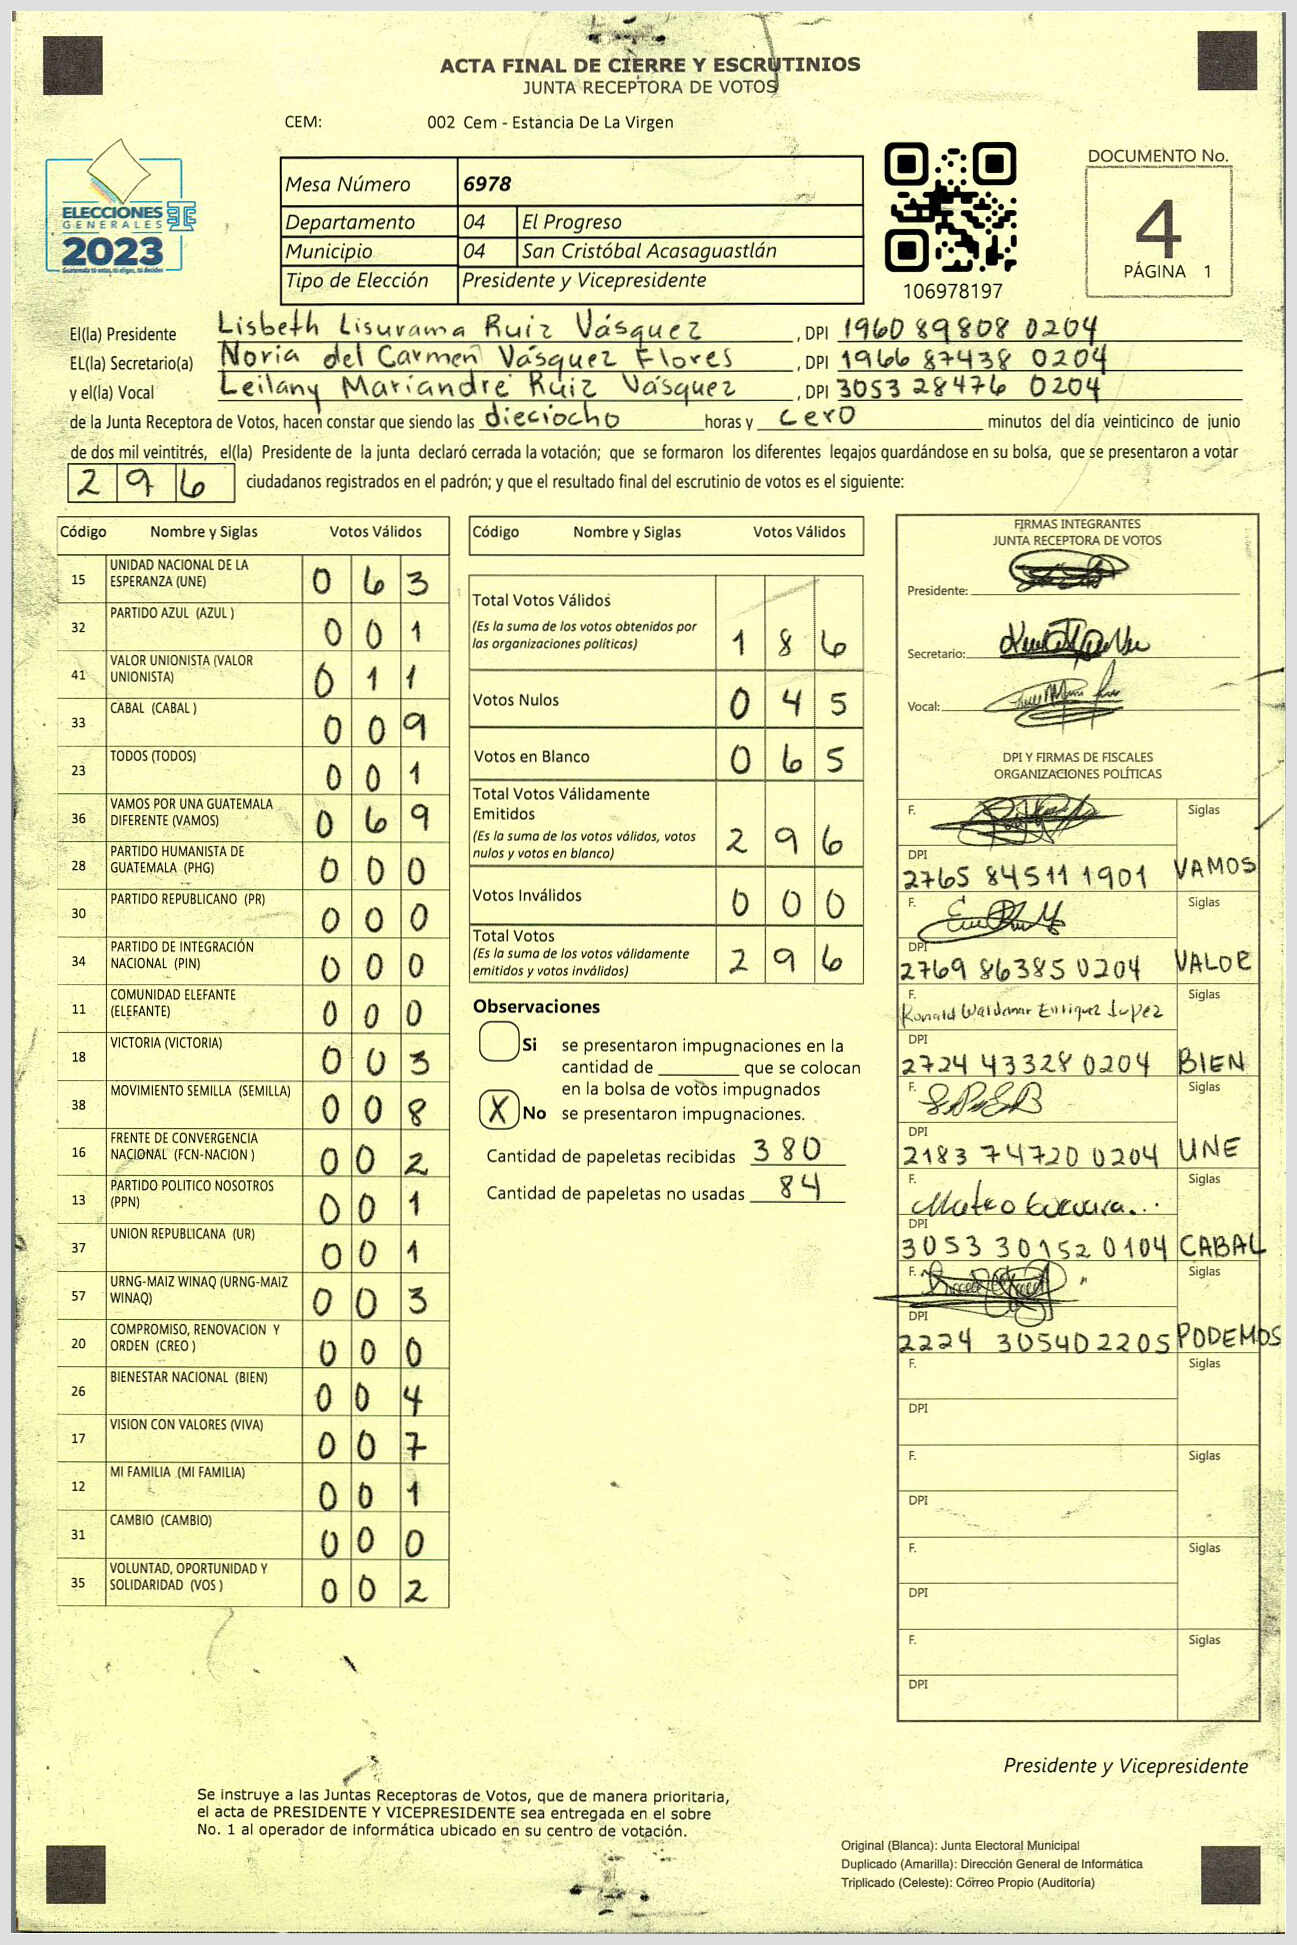 ACTA FINAL DE CIERRE Y ESCRUTINIOS
JUNTA RECEPTORA DE VOTOS
CEM: 002 Cem - Estancia De La Virgen
ELECCIONES
GENERALES
2023
Mesa Número 6978
Departamento 04 El Progreso
Municipio 04 San Cristóbal Acasaguastlán
Tipo de Elección Presidente y Vicepresidente
106978197
DOCUMENTO No.
4
PÁGINA 1
El(la) Presidente Lisbeth Lisurama Ruiz Vásquez , DPI 1960 89808 0204
EL(la) Secretario(a) Noria del Carmen Vásquez Flores , DPI 1966 87438 0204
y el(la) Vocal Leilany Mariandre Ruiz Vásquez , DPI 3053 28476 0204
de la Junta Receptora de Votos, hacen constar que siendo las dieciocho horas y cero minutos del día veinticinco de junio
de dos mil veintitrés, el(la) Presidente de la junta declaró cerrada la votación; que se formaron los diferentes legajos guardándose en su bolsa, que se presentaron a votar
296 ciudadanos registrados en el padrón; y que el resultado final del escrutinio de votos es el siguiente:
Código Nombre y Siglas Votos Válidos
15 UNIDAD NACIONAL DE LA
ESPERANZA (UNE) 063
32 PARTIDO AZUL (AZUL ) 001
41 VALOR UNIONISTA (VALOR
UNIONISTA) 011
33 CABAL (CABAL ) 009
23 TODOS (TODOS) 001
36 VAMOS POR UNA GUATEMALA
DIFERENTE (VAMOS) 069
28 PARTIDO HUMANISTA DE
GUATEMALA (PHG) 000
30 PARTIDO REPUBLICANO (PR) 000
34 PARTIDO DE INTEGRACIÓN
NACIONAL (PIN) 000
11 COMUNIDAD ELEFANTE
(ELEFANTE) 000
18 VICTORIA (VICTORIA) 003
38 MOVIMIENTO SEMILLA (SEMILLA) 008
16 FRENTE DE CONVERGENCIA
NACIONAL (FCN-NACION ) 002
13 PARTIDO POLITICO NOSOTROS
(PPN) 001
37 UNION REPUBLICANA (UR) 001
57 URNG-MAIZ WINAQ (URNG-MAIZ
WINAQ) 003
20 COMPROMISO, RENOVACION Y
ORDEN (CREO ) 000
26 BIENESTAR NACIONAL (BIEN) 004
17 VISION CON VALORES (VIVA) 007
12 MI FAMILIA (MI FAMILIA) 001
31 CAMBIO (CAMBIO) 000
35 VOLUNTAD, OPORTUNIDAD Y
SOLIDARIDAD (VOS ) 002
Código Nombre y Siglas Votos Válidos
Total Votos Válidos
(Es la suma de los votos obtenidos por
las organizaciones políticas) 186
Votos Nulos 045
Votos en Blanco 065
Total Votos Válidamente
Emitidos
(Es la suma de los votos válidos, votos
nulos y votos en blanco) 296
Votos Inválidos 000
Total Votos
(Es la suma de los votos válidamente
emitidos y votos inválidos) 296
Observaciones
Si se presentaron impugnaciones en la
cantidad de ________ que se colocan
en la bolsa de votos impugnados
X No se presentaron impugnaciones.
Cantidad de papeletas recibidas 380
Cantidad de papeletas no usadas 84
FIRMAS INTEGRANTES
JUNTA RECEPTORA DE VOTOS
Presidente:
Secretario:
Vocal:
DPI Y FIRMAS DE FISCALES
ORGANIZACIONES POLÍTICAS
F. Siglas
DPI
2765 84511 1901 VAMOS
F. Siglas
DPI
2769 86385 0204 VALOR
F. Siglas
Ronald Waldemar Enriquez Lopez
DPI
2724 43328 0204 BIEN
F. Siglas
DPI
2183 74720 0204 UNE
F. Siglas
Mateo Guevara...
DPI
3053 30152 0104 CABAL
F. Siglas
DPI
2224 30540 2205 PODEMOS
F. Siglas
DPI
F. Siglas
DPI
F. Siglas
DPI
F. Siglas
DPI
Presidente y Vicepresidente
Se instruye a las Juntas Receptoras de Votos, que de manera prioritaria,
el acta de PRESIDENTE Y VICEPRESIDENTE sea entregada en el sobre
No. 1 al operador de informática ubicado en su centro de votación.
Original (Blanca): Junta Electoral Municipal
Duplicado (Amarilla): Dirección General de Informática
Triplicado (Celeste): Correo Propio (Auditoría)